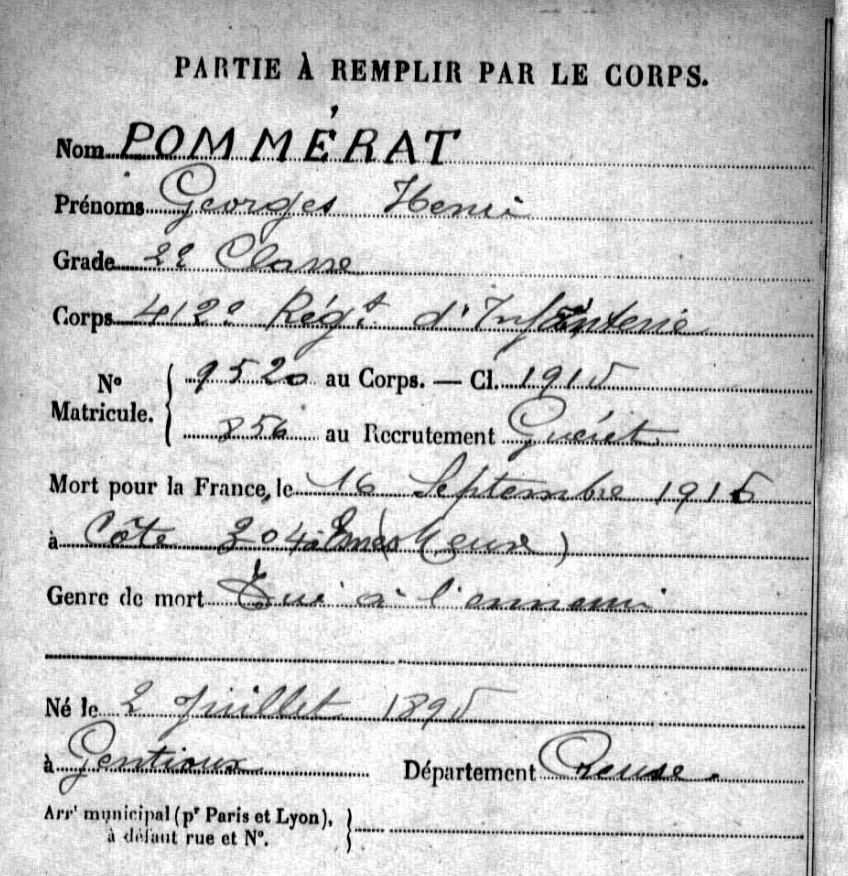 PARTIE À REMPLIR PAR LE CORPS.
Nom POMMÉRAT
Prénoms Georges Henri
Grade 2e Classe
Corps 412e Régt. d'Infanterie
No Matricule. { 9520 au Corps. — Cl. 1915
856 au Recrutement Guéret
Mort pour la France, le 16 Septembre 1916
à Côte 304 (Meuse)
Genre de mort Tué à l'ennemi
Né le 2 Juillet 1895
à Gentioux Département Creuse.
Arrt municipal (pr Paris et Lyon), }
à défaut rue et No.